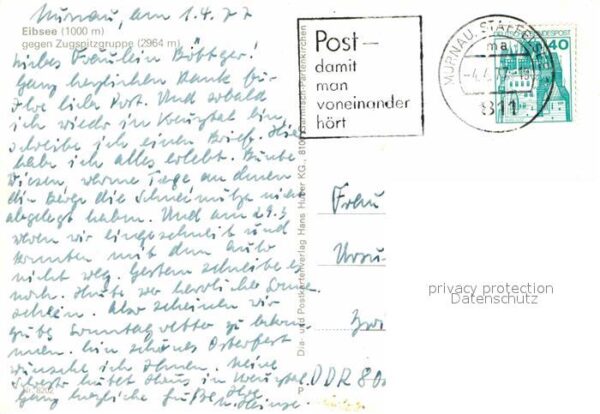 Murnau, am 1.4.77
Eibsee (1000 m)
gegen Zugspitzgruppe (2964 m)
Liebes Fräulein Böttger!
Ganz herzlichen Dank für
Ihre Post. Und sobald
ich wieder in bin,
schreibe ich einen Brief. Hier
hab ich alles erlebt. Bunte
Wiesen, warme Tage an denen
die Berge die Schneemütze nicht
abgelegt haben. Und am 29.3
waren wir eingeschneit und
konnten mit dem Auto
nicht weg. Gestern schneite es
noch. Heute war herrlicher Sonnen
schein. Also scheinen wir
gutes Sonntagwetter zu bekom-
men. Ein schönes Osterfest
wünsche ich Ihnen. Meine
hütet Haus in
Ganz herzliche Grüße Ihre
Nr. 8202
Dia- und Postkartenverlag Hans Huber KG., 8100 Garmisch-Partenkirchen
Post –
damit
man
voneinander
hört
MURNAU, STAFFELSEE
ma
-4.4.77-18
811
DEUTSCHE BUNDESPOST
40
Frau
Ursu
Zwi
DDR 80
privacy protection
Datenschutz